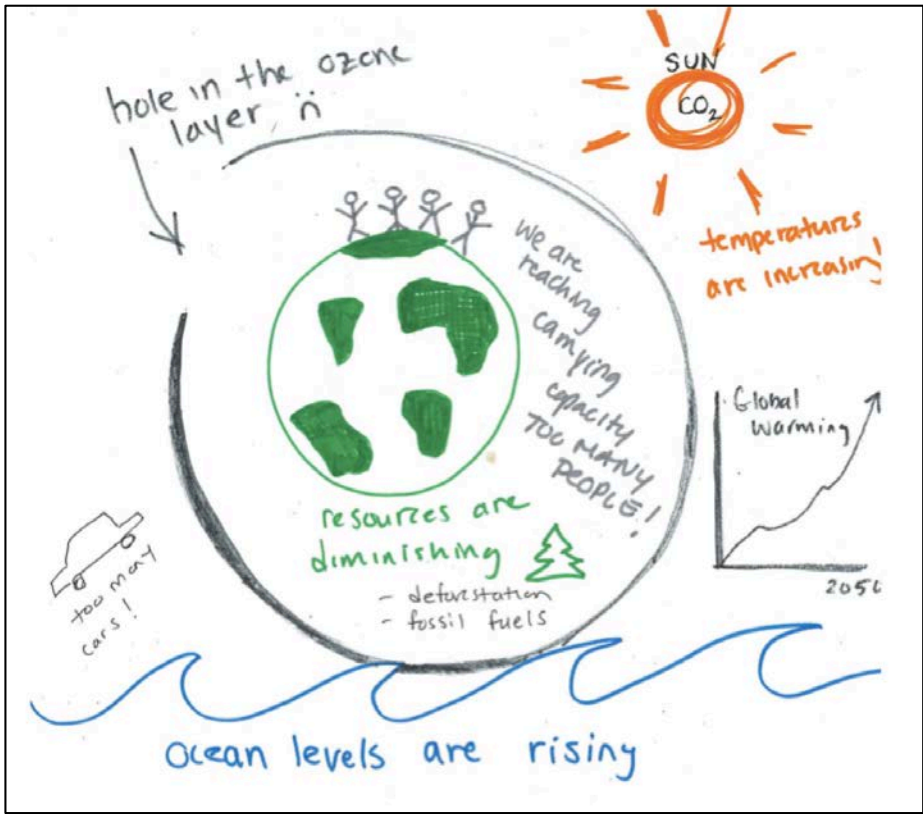 hole in the ozone
layer :(
SUN
CO2
temperatures
are increasin!
we are
reaching
carrying
capacity
TOO MANY
PEOPLE!
Global
warming
2050
resources are
diminishing
- deforestation
- fossil fuels
too many
cars!
ocean levels are rising